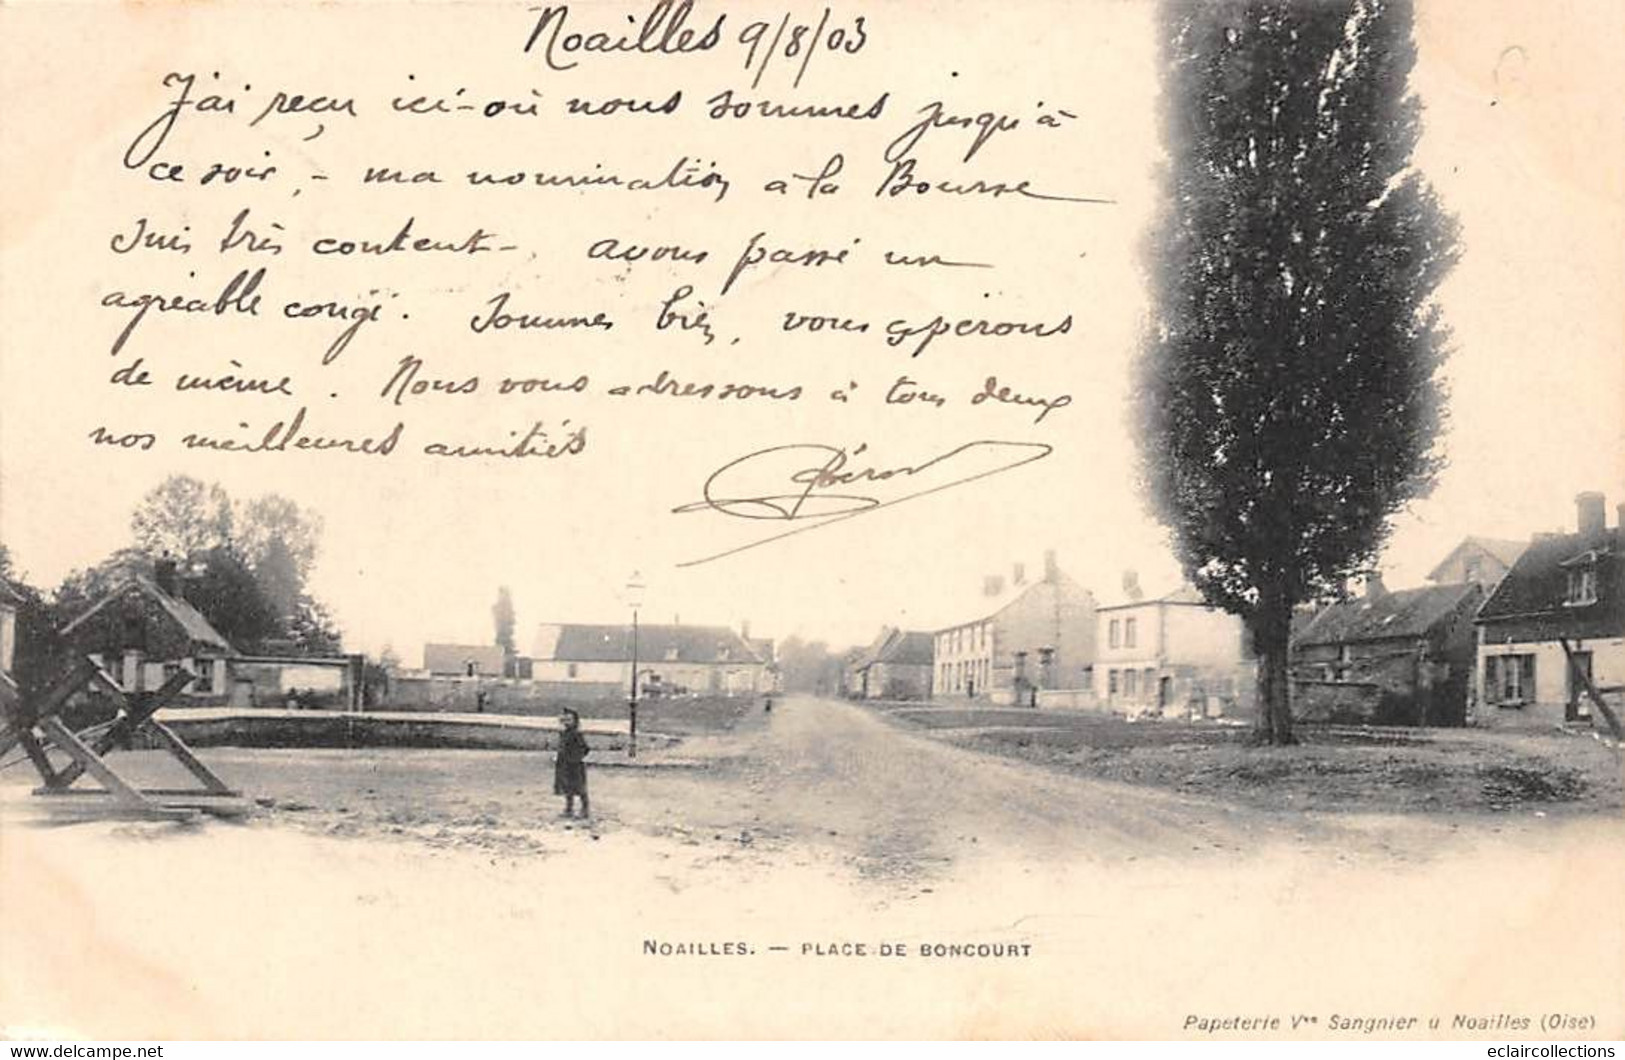 Noailles 9/8/03
J'ai reçu ici - où nous sommes jusqu'à
ce soir, - ma nomination à la Bourse
suis très content - avons passé un
agréable congé. Sommes bien, vous espérons
de même. Nous vous adressons à tous deux
nos meilleures amitiés
NOAILLES. — PLACE DE BONCOURT
Papeterie Vve Sangnier à Noailles (Oise)
eclaircollections sur www.delcampe.net